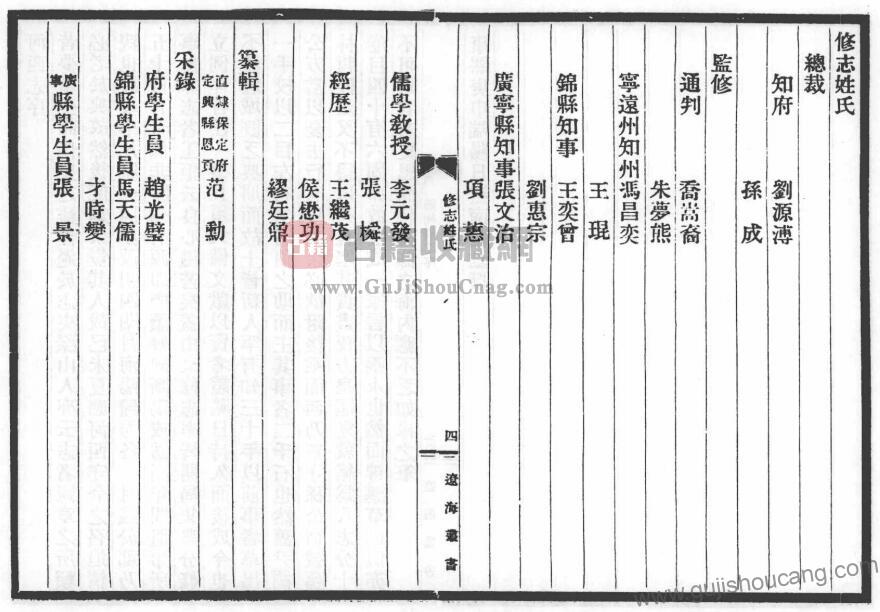 修志姓氏
總裁
知府 劉源溥
孫成
監修
通判 喬嵩裔
朱夢熊
寧遠州知州馮昌奕
王琨
錦縣知事 王奕曾
劉惠宗
廣寧縣知事張文治
項蕙
修志姓氏
四
遼海叢書
儒學敎授 李元發
張
經歷 王繼茂
侯懋功
繆廷
纂輯
直隸保定府定興縣恩貢 范勳
采錄
府學生員 趙光璧
錦縣學生員馬天儒
才時變
廣寧縣學生員張景
古籍收藏网
www.GuJiShouCnag.com
www.gujishoucang.com